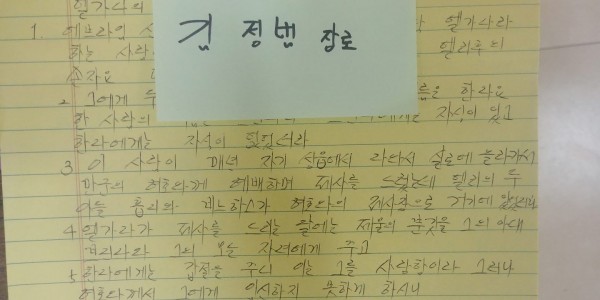 엘가나의
1. 에브라임 엘가나라
하는 사람 엘리후의
손자요
김 정범 장로
2 그에게 두 름은 한나요
한 사람의 자식이 있고
한나에게는 자식이 없었더라
3 이 사람이 매년 자기 성읍에서 나와서 실로에 올라가서
만군의 여호와께 예배하며 제사를 드렸는데 엘리의 두
아들 홉니와 비느하스가 여호와의 제사장으로 거기에 있었더라
4 엘가나가 제사를 드리는 날에는 제물의 분깃을 그의 아내
브닌나와 그의 모든 자녀에게 주고
5 한나에게는 갑절을 주니 이는 그를 사랑함이라 그러나
여호와께서 그에게 임신하지 못하게 하시니